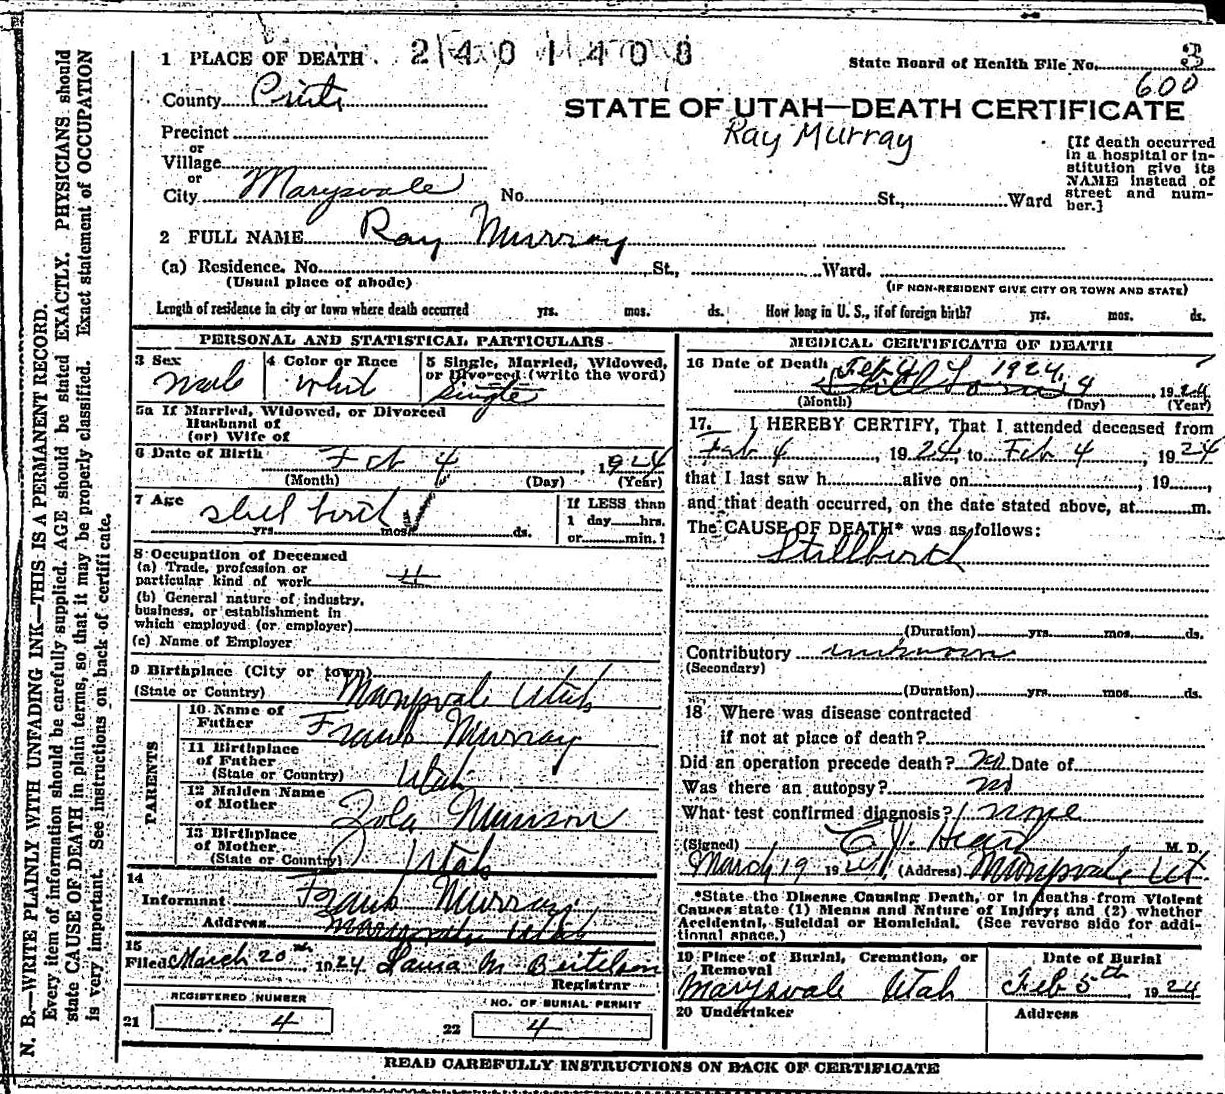 1 PLACE OF DEATH. 2401400
State Board of Health File No. 3
600
County Piute
STATE OF UTAH—DEATH CERTIFICATE
Ray Murray
Precinct
or
Village
or
City Marysvale No. St., Ward
[If death occurred
in a hospital or in-
stitution give its
NAME instead of
street and num-
ber.]
2 FULL NAME Ray Murray
(a) Residence. No. St., Ward.
(Usual place of abode) (IF NON-RESIDENT GIVE CITY OR TOWN AND STATE)
Length of residence in city or town where death occurred yrs. mos. ds. How long in U. S., if of foreign birth? yrs. mos. ds.
PERSONAL AND STATISTICAL PARTICULARS
3 Sex
male
4 Color or Race
Whit
5 Single, Married, Widowed,
or Divorced (write the word)
Single
5a If Married, Widowed, or Divorced
Husband of
(or) Wife of
6 Date of Birth Feb 4, 1924
(Month) (Day) (Year)
7 Age
still birth
yrs. mos. ds.
If LESS than
1 day hrs.
or min.?
8 Occupation of Deceased
(a) Trade, profession or
particular kind of work
(b) General nature of industry,
business, or establishment in
which employed (or employer)
(c) Name of Employer
9 Birthplace (City or town)
(State or Country) Marysvale Utah
PARENTS
10 Name of
Father Frank Murray
11 Birthplace
of Father
(State or Country) Utah
12 Maiden Name
of Mother Zola Munson
13 Birthplace
of Mother
(State or Country) Utah
14
Informant Frank Murray
Address Marysvale Utah
15
Filed March 20th, 1924 Laura M Bertelson
Registrar
REGISTERED NUMBER
21 4
NO. OF BURIAL PERMIT
22 4
MEDICAL CERTIFICATE OF DEATH
16 Date of Death Feb 4 1924
Still born 4, 1924
(Month) (Day) (Year)
17. I HEREBY CERTIFY, That I attended deceased from
Feb 4, 1924, to Feb 4, 1924
that I last saw h alive on, 19,
and that death occurred, on the date stated above, at m.
The CAUSE OF DEATH* was as follows:
Stillbirth
(Duration) yrs. mos. ds.
Contributory unknown
(Secondary)
(Duration) yrs. mos. ds.
18 Where was disease contracted
if not at place of death?
Did an operation precede death? no Date of
Was there an autopsy? no
What test confirmed diagnosis? none
(Signed) M. D.
March 19 1924, (Address) Marysvale Ut.
*State the Disease Causing Death, or in deaths from Violent
Causes state (1) Means and Nature of Injury; and (2) whether
Accidental, Suicidal or Homicidal. (See reverse side for addi-
tional space.)
19 Place of Burial, Cremation, or
Removal
Marysvale Utah
Date of Burial
Feb 5th, 1924
20 Undertaker
Address
READ CAREFULLY INSTRUCTIONS ON BACK OF CERTIFICATE
N. B.—WRITE PLAINLY WITH UNFADING INK—THIS IS A PERMANENT RECORD.
Every item of information should be carefully supplied. AGE should be stated EXACTLY. PHYSICIANS should
state CAUSE OF DEATH in plain terms, so that it may be properly classified. Exact statement of OCCUPATION
is very important. See instructions on back of certificate.